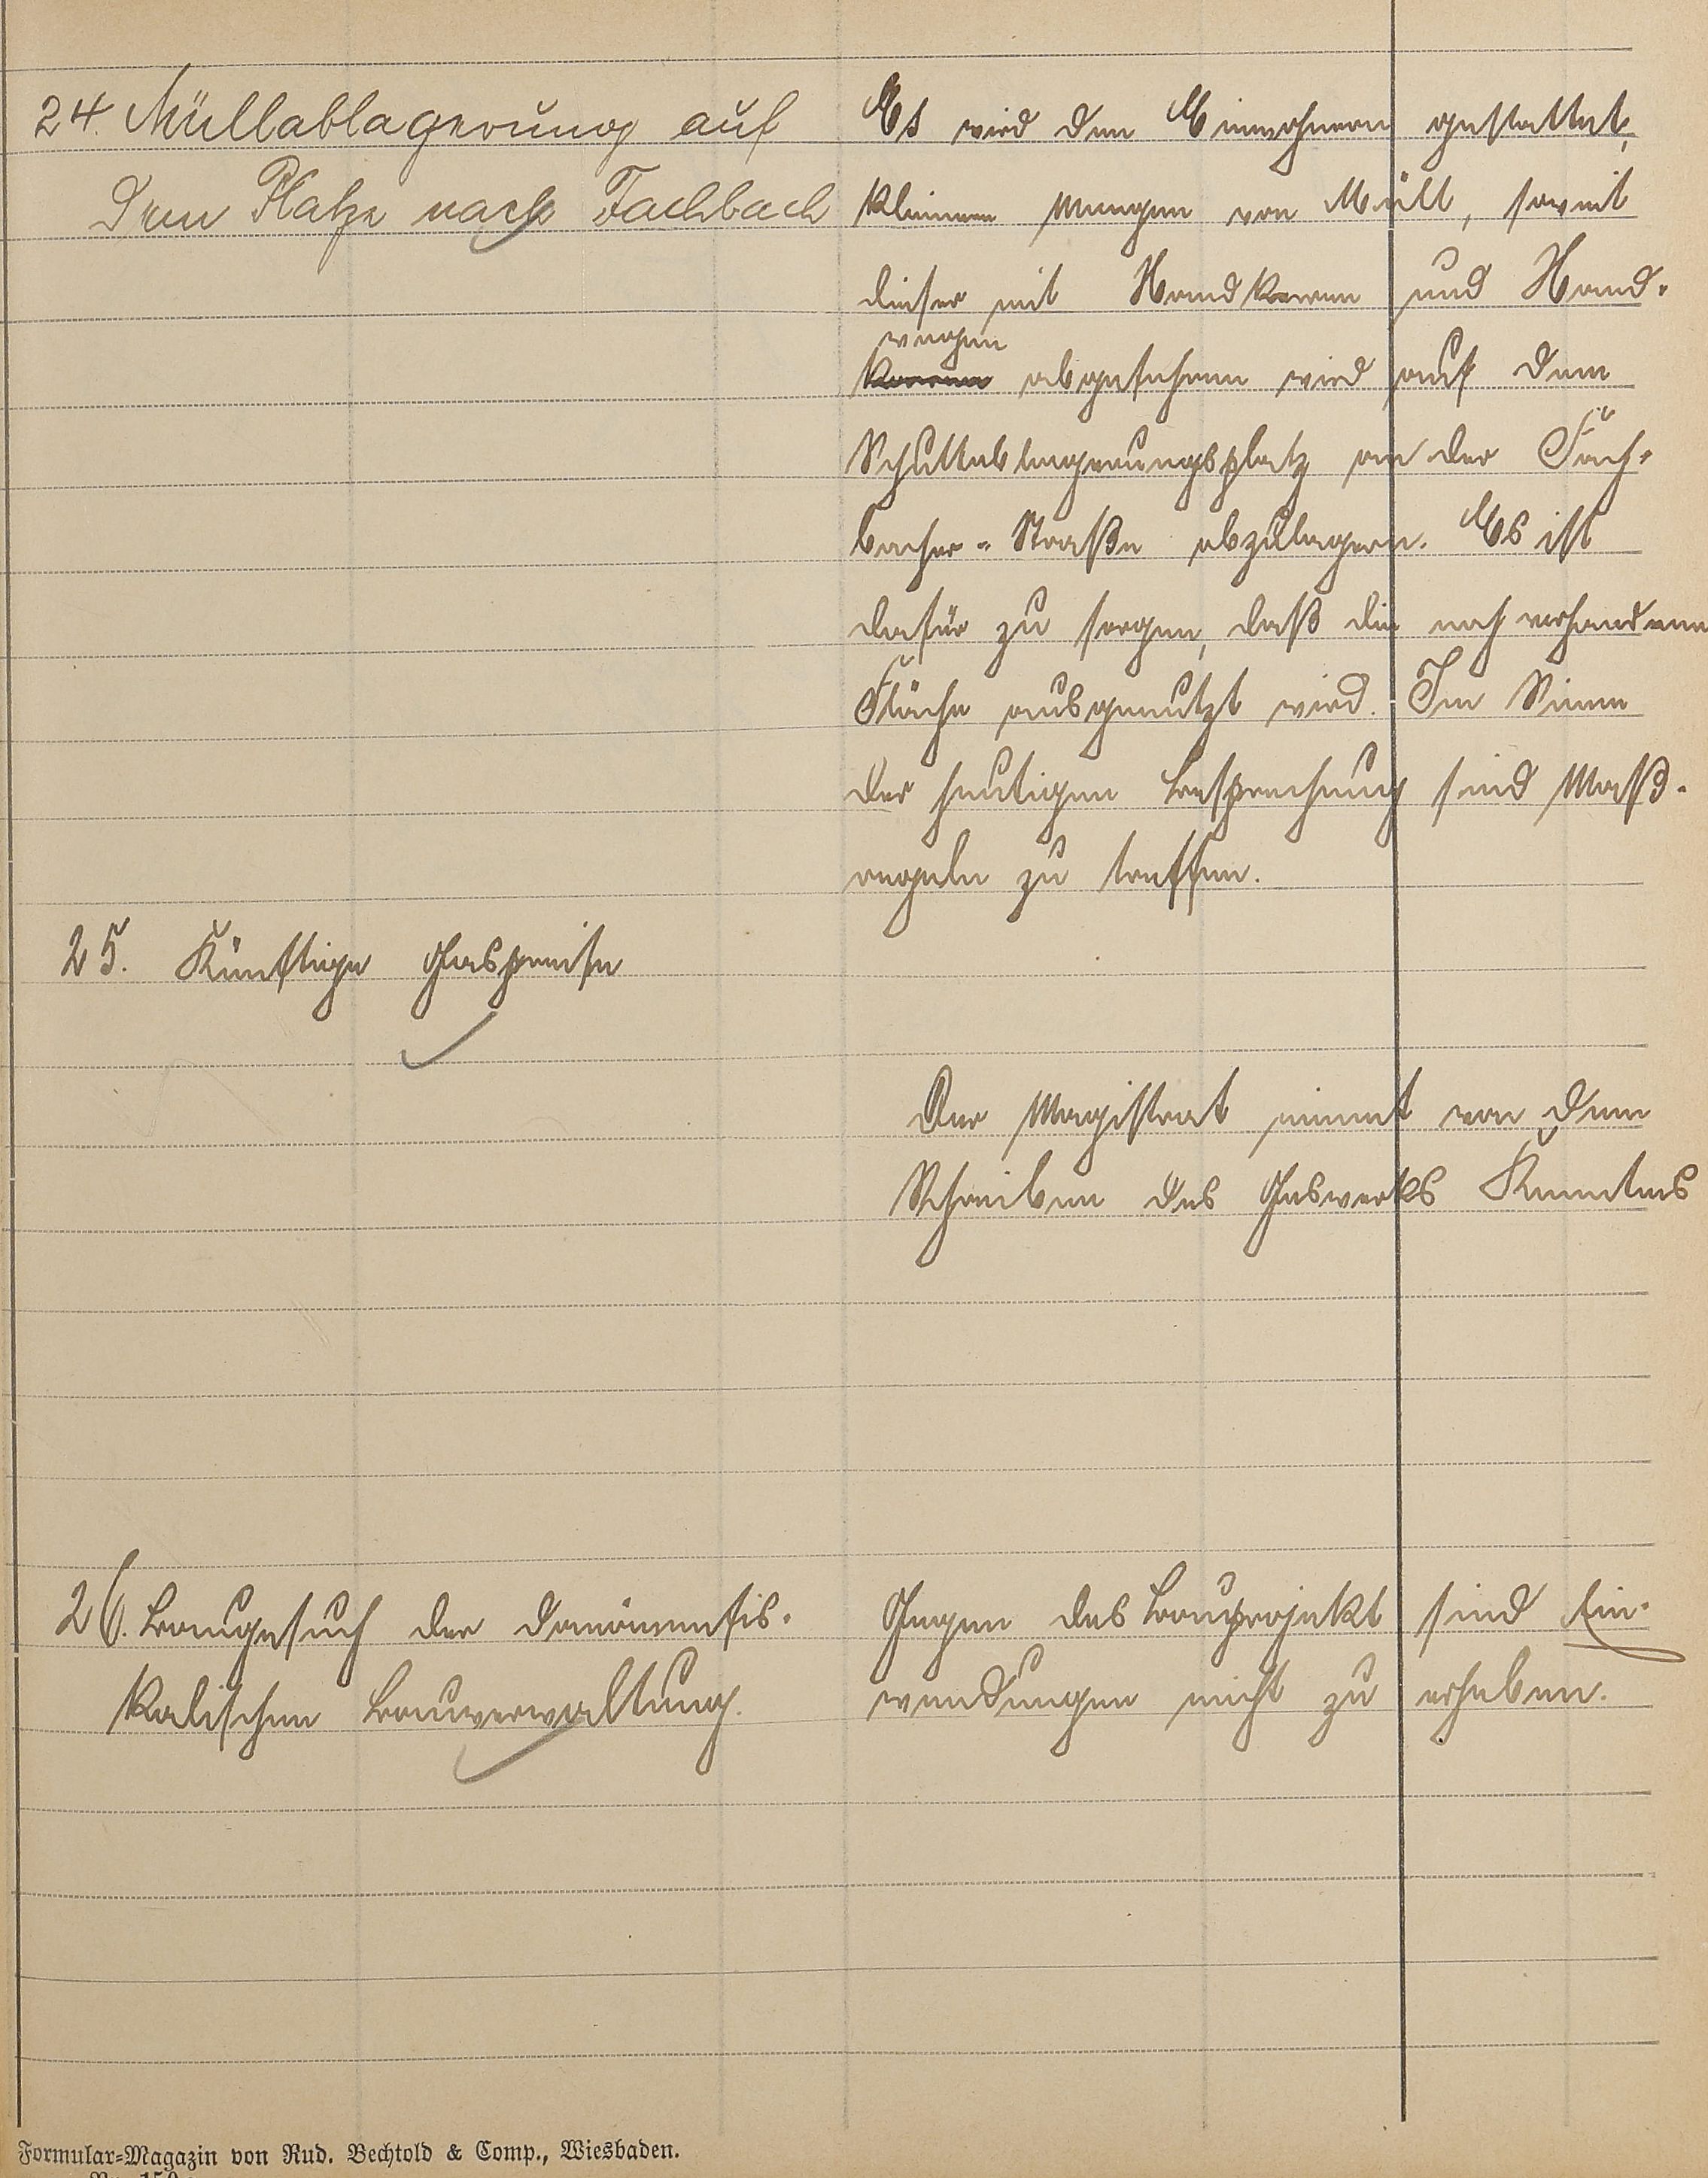 24. Müllablagerung auf
dem Platze nach Fachbach
Es wird den Einwohnern gestattet,
kleinere Mengen von Müll, soweit
dieser mit Handkarren und Hand-
wagen
karren abgefahren wird auf dem
Schuttablagerungsplatz an der Fach-
bacher-Straße abzulagern. Es ist
dafür zu sorgen, daß die noch vorhandene
Fläche ausgenutzt wird. Im Sinne
der heutigen Besprechung sind Maß-
regeln zu treffen.
25. Künftige Gaspreise
Der Magistrat nimmt von dem
Schreiben des Gaswerks Kenntnis
26. Baugesuch der domänenfis-
kalischen Bauverwaltung.
Gegen das Bauprojekt sind Ein-
wendungen nicht zu erheben.
Formular-Magazin von Rud. Bechtold & Comp., Wiesbaden.